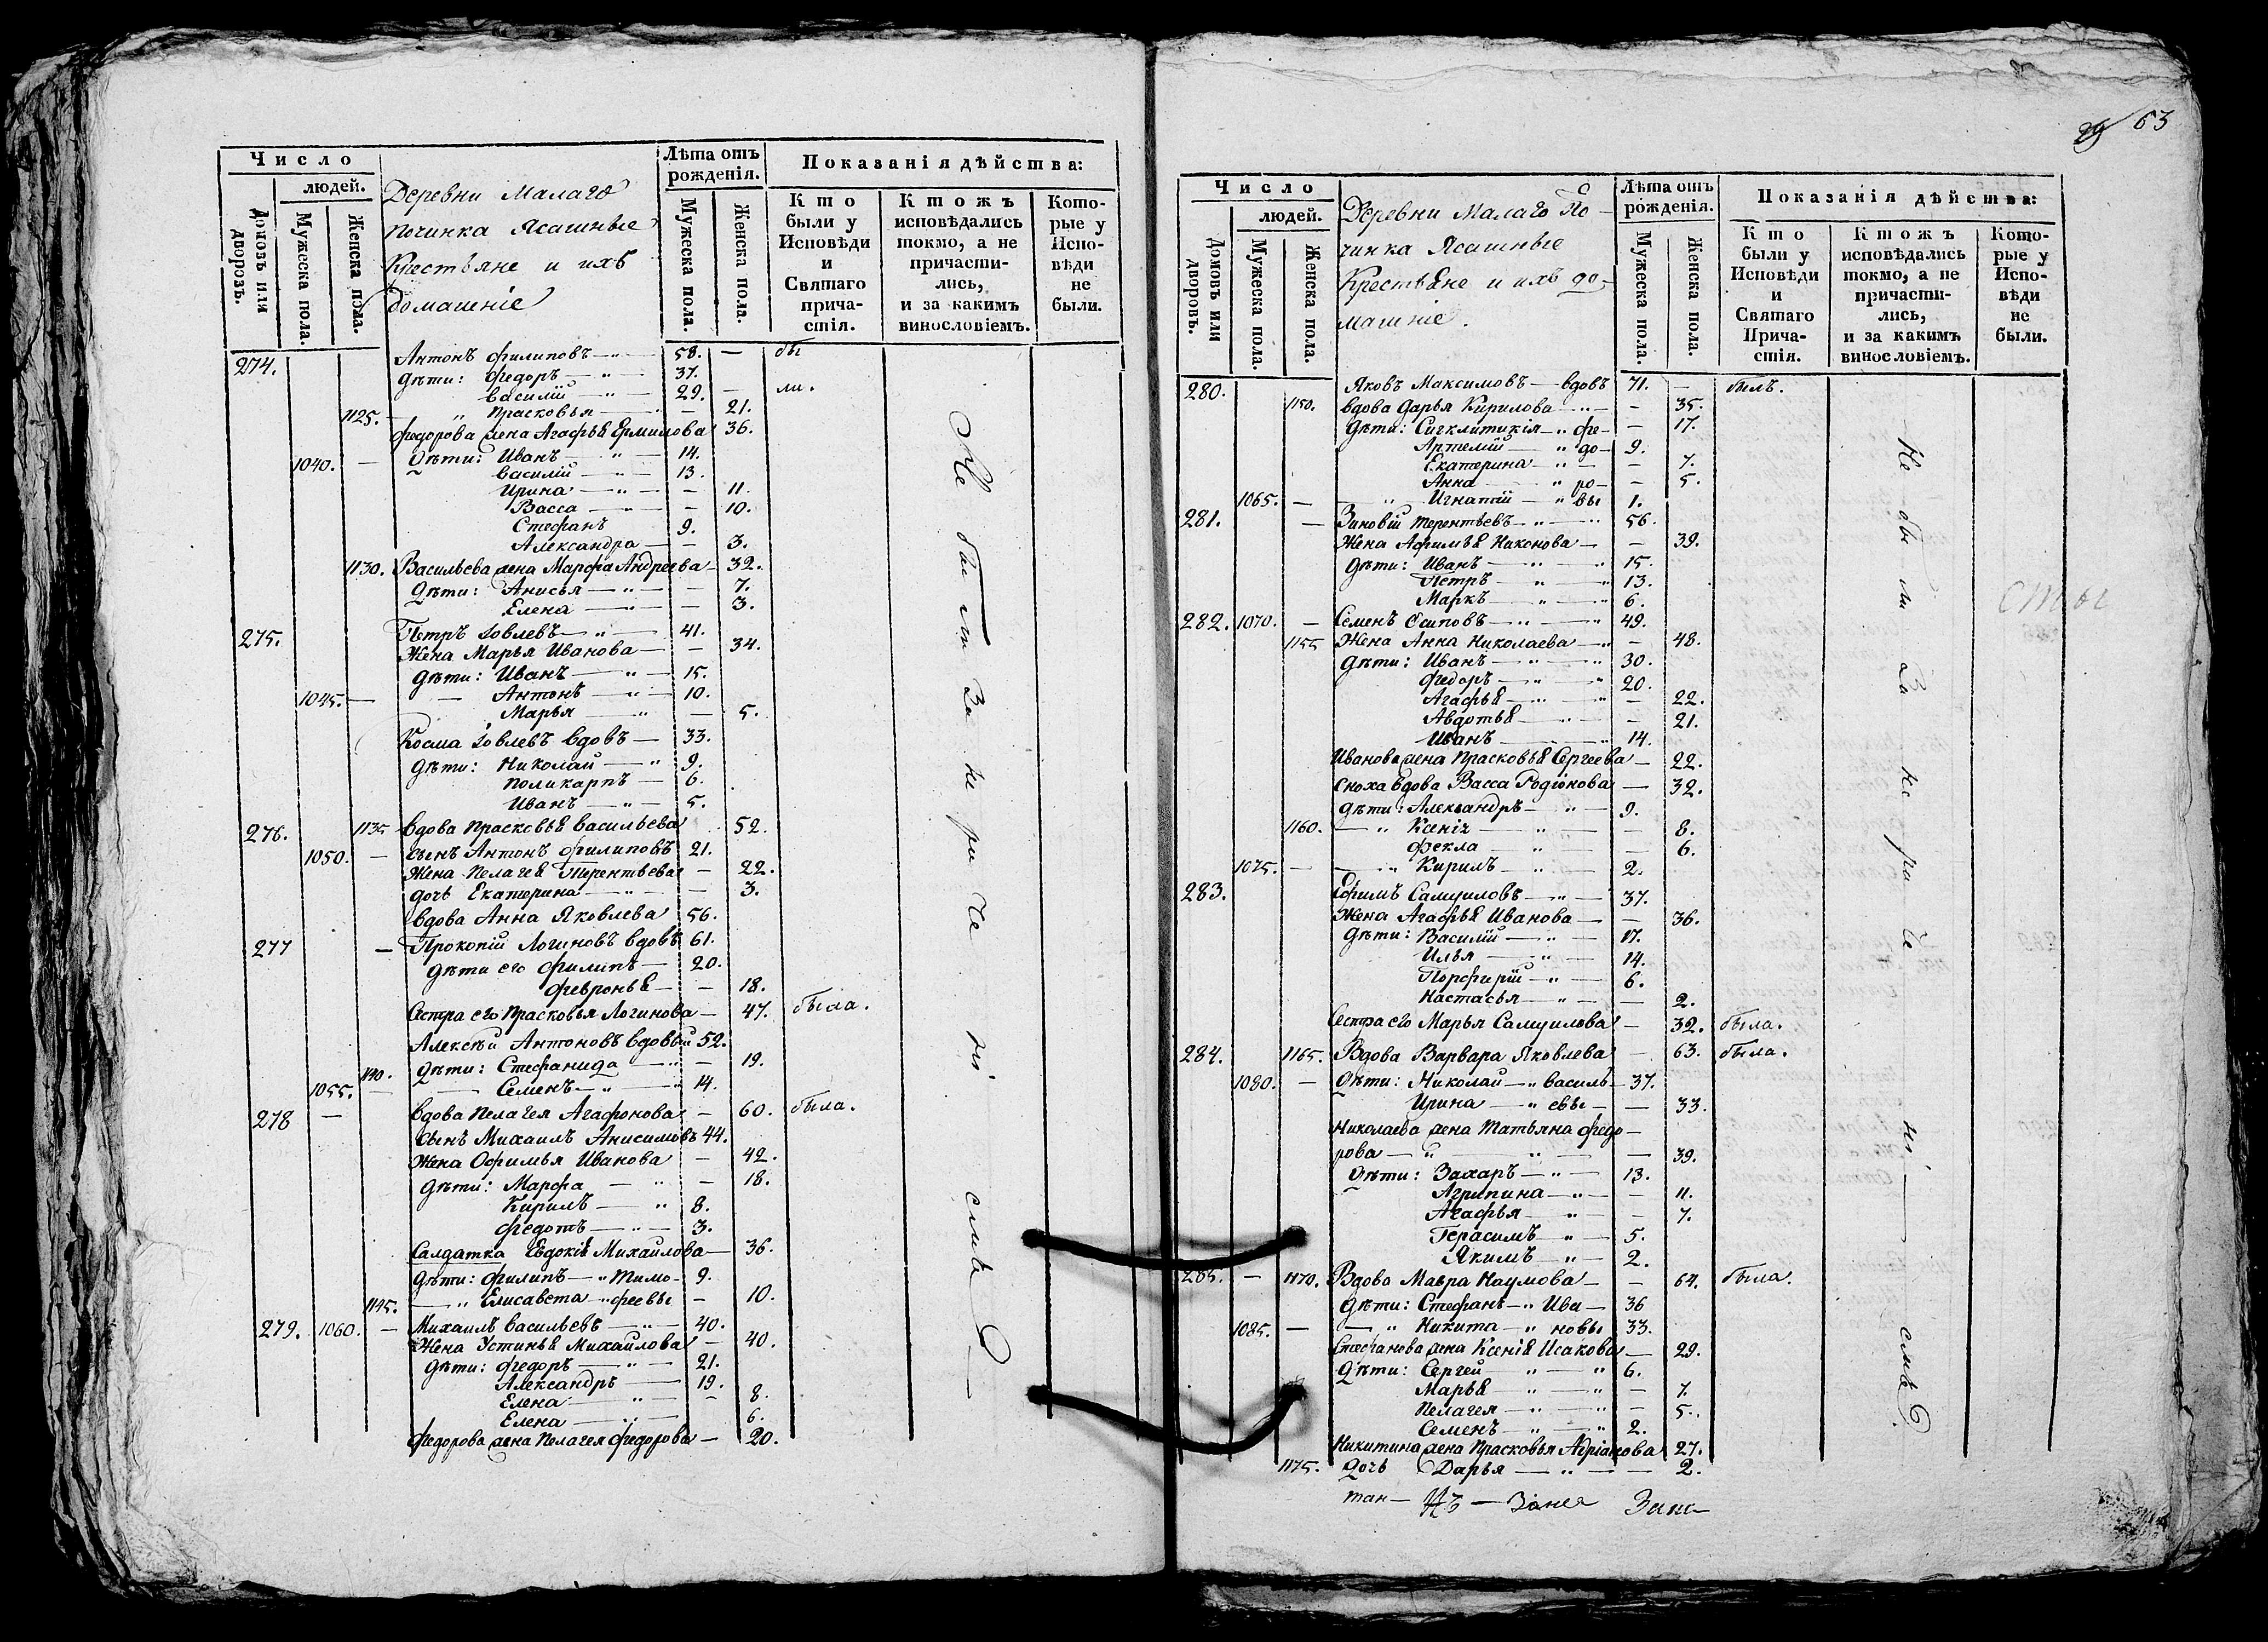 Число
людей.
Домовъ или дворовъ.
Мужеска пола.
Женска пола.
Деревни Малаго
починка Ясашные
Крестьяне и ихъ
домашніе
Лѣта отъ рожденія.
Мужеска пола.
Женска пола.
Показанія дѣйства:
Кто были у Исповѣди и Святаго причастія.
Ктожъ исповѣдались токмо, а не причастились, и за какимъ винословіемъ.
Которые у Исповѣди не были.
274. Антонъ Филиповъ 58. — бы
дѣти: Федоръ 37.
Василій 29. — ли.
1125. Прасковья — 21.
Федорова жена Агафья Ермилова 36.
1040. — Дѣти: Иванъ 14.
Василій 13.
Ирина — 11.
Васса — 10.
Стефанъ 9.
Александра — 3.
1130. Васильева жена Марфа Андреева — 32.
Дѣти: Анисья — 7.
Елена — 3.
275. Петръ Іовлевъ 41.
Жена Марья Иванова — 34.
дѣти: Иванъ 15.
1045. — Антонъ 10.
Марья — 5.
Косма Іовлевъ вдовъ 33.
дѣти: Николай 9.
Поликарпъ 6.
Иванъ 5.
276. 1135 Вдова Прасковья Васильева 52.
1050. — сынъ Антонъ Филиповъ 21.
Жена Пелагея Терентьева — 22.
дочь Екатерина — 3.
Вдова Анна Яковлева 56.
277 — Прокопій Логиновъ вдовъ 61.
дѣти его Филипъ 20.
Февронья — 18.
Сестра его Прасковья Логинова — 47. была.
Алексѣй Антоновъ вдовый 52.
1140. дѣти: Стефанида — 19.
1055. — Семенъ 14.
278 — Вдова Пелагея Агафонова — 60. была.
Сынъ Михаилъ Анисимовъ 44.
Жена Офимья Иванова — 42.
дѣти: Марфа — 18.
Кирилъ 8.
Федотъ 3.
Салдатка Евдокія Михайлова — 36.
дѣти: Филипъ — Тимо- 9.
1145. Елисавета феевы — 10.
279. 1060. — Михаилъ Васильевъ 40.
Жена Устинья Михайлова — 40.
дѣти: Федоръ 21.
Александръ 19.
Елена — 8.
Елена 6.
Федорова жена Пелагея Федорова — 20.
Не были За нерачениемъ
63
Число
людей.
Домовъ или дворовъ.
Мужеска пола.
Женска пола.
Деревни Малаго По-
чинка Ясашные
Крестьяне и ихъ до-
машніе.
Лѣта отъ рожденія.
Мужеска пола.
Женска пола.
Показанія дѣйства:
Кто были у Исповѣди и Святаго Причастія.
Ктожъ исповѣдались токмо, а не причастились, и за какимъ винословіемъ.
Которые у Исповѣди не были.
280. Яковъ Максимовъ — вдовъ 71. — былъ.
1150. Вдова Дарья Кирилова — 35.
Дѣти: Сигклитикія фе- — 17.
Артемій до- 9.
Екатерина — 7.
Анна ро- — 5.
1065. — Игнатій вы 1.
281. — Зиновій Терентьевъ 56.
Жена Афимья Никонова — 39.
дѣти: Иванъ 15.
Петръ 13.
Маркъ 6.
282. 1070. — Семенъ Осиповъ 49.
1155 Жена Анна Николаева — 48.
дѣти: Иванъ 30.
Федоръ 20.
Агафья — 22.
Авдотья — 21.
Иванъ 14.
Иванова жена Прасковья Сергеева — 22.
Сноха вдова Васса Родіонова — 32.
дѣти: Александръ 9.
1160. Ксенія — 8.
Фекла — 6.
1075. — Кирилъ 2.
283. Ефимъ Самуиловъ 37.
Жена Агафья Иванова — 36.
дѣти: Василій 17.
Илья 14.
Порфирій 6.
Настасья — 2.
Сестра его Марья Самуилова — 32. была.
284. 1165. Вдова Варвара Яковлева — 63. была.
1080. — Дѣти: Николай — Василь- 37.
Ирина евы — 33.
Николаева жена Татьяна Федо-
рова — 39.
Дѣти: Захаръ 13.
Агрипина — 11.
Агафья — 7.
Герасимъ 5.
Якимъ 2.
285. — 1170. Вдова Мавра Наумова — 64. была.
дѣти: Стефанъ — Ива- 36
1085. — Никита новы 33.
Стефанова жена Ксенія Исакова — 29.
Дѣти: Сергей 6.
Марья — 7.
Пелагея — 5.
Семенъ 2.
Никитина жена Прасковья Адріанова 27.
1175. Дочь Дарья — 2.
Не были За нерачениемъ